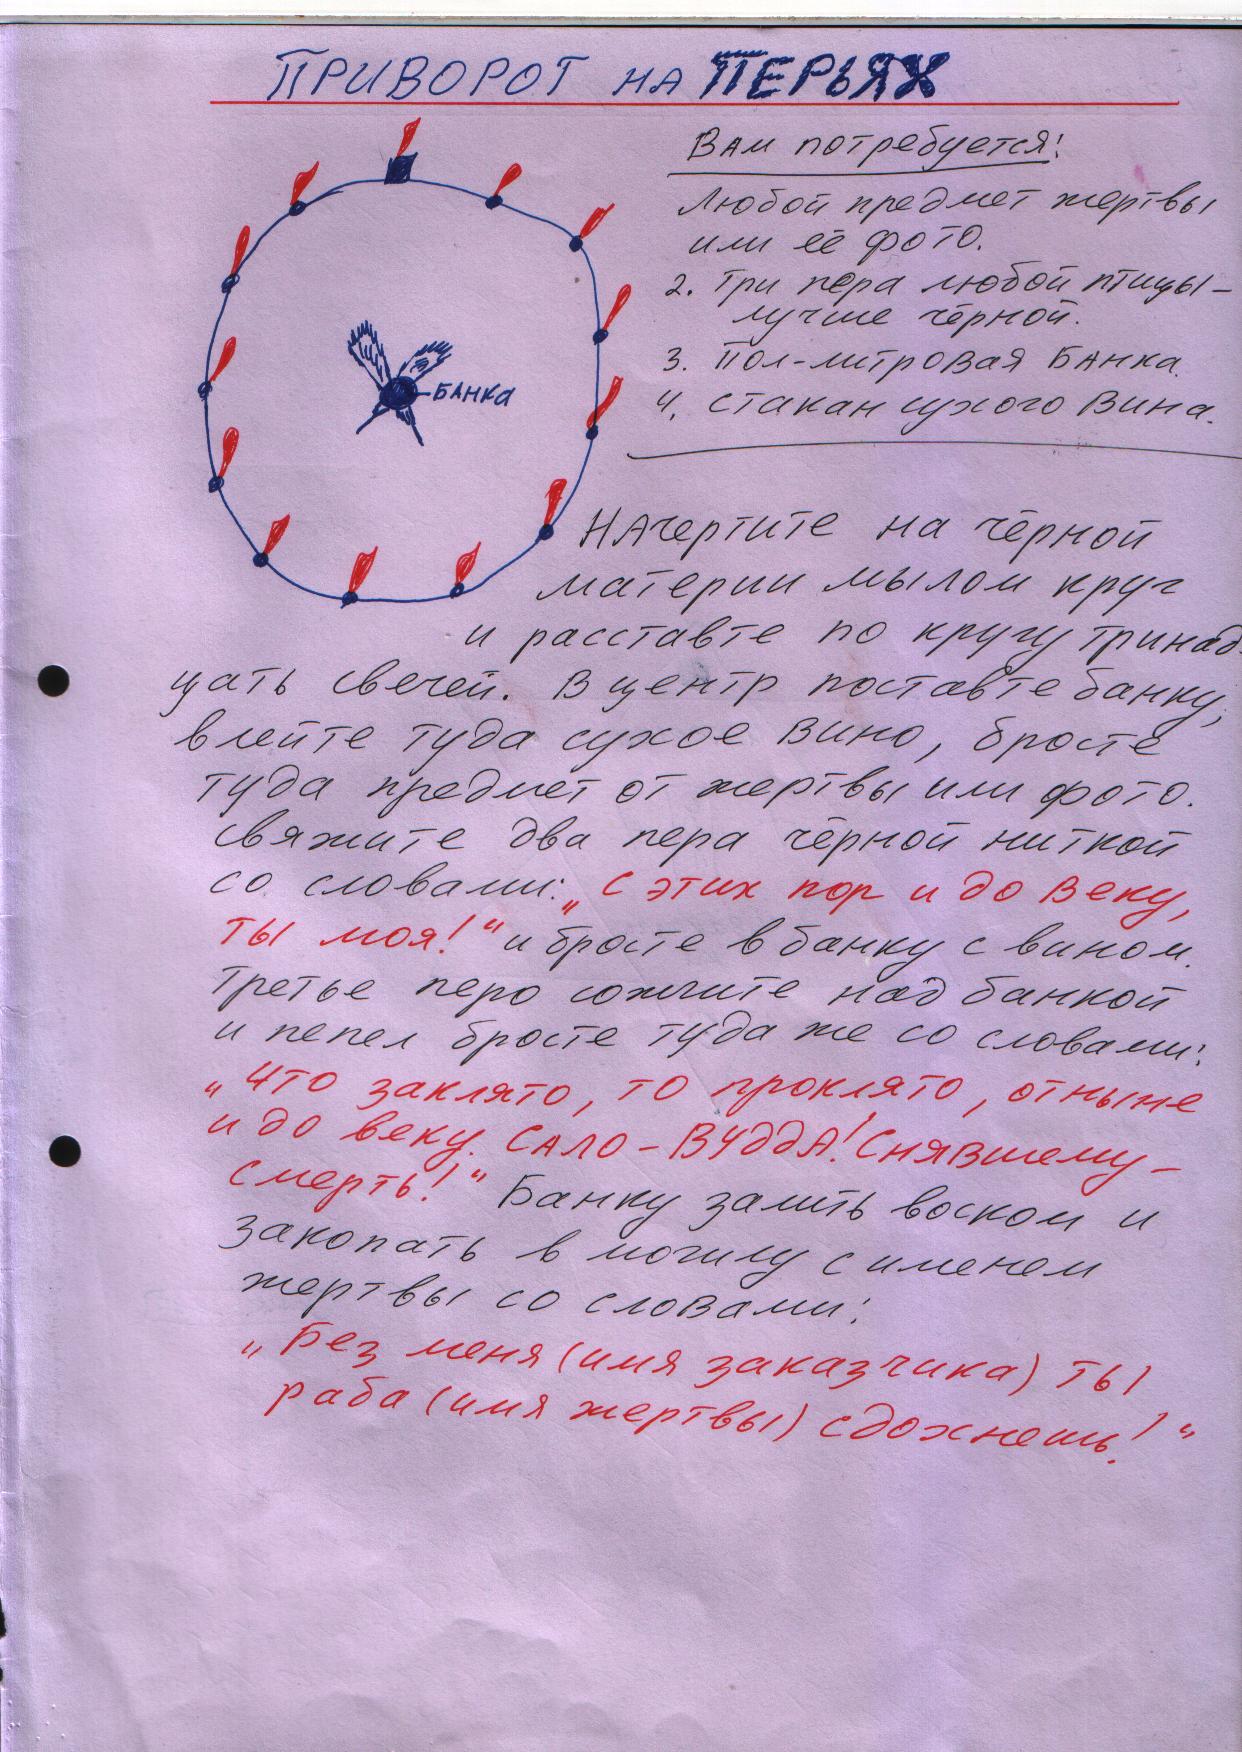 ПРИВОРОТ НА ПЕРЬЯХ
Вам потребуется!
Любой предмет жертвы
или её фото.
2. Три пера любой птицы –
лучше чёрной.
3. Пол-литровая банка.
4. Стакан сухого вина.
БАНКА
Начертите на чёрной
материи мылом круг
и расставте по кругу тринад
цать свечей. В центр поставте банку,
влейте туда сухое вино, бросте
туда предмет от жертвы или фото.
Свяжите два пера чёрной ниткой
со словами: „С этих пор и до веку,
ты моя!“ и бросте в банку с вином.
Третье перо сожгите над банкой
и пепел бросте туда же со словами:
„Что заклято, то проклято, отныне
и до веку. САЛО-ВУДДА! Снявшему –
смерть!“ Банку залить воском и
закопать в могилу с именем
жертвы со словами:
„Без меня (имя заказчика) ты
раба (имя жертвы) сдохнешь!“